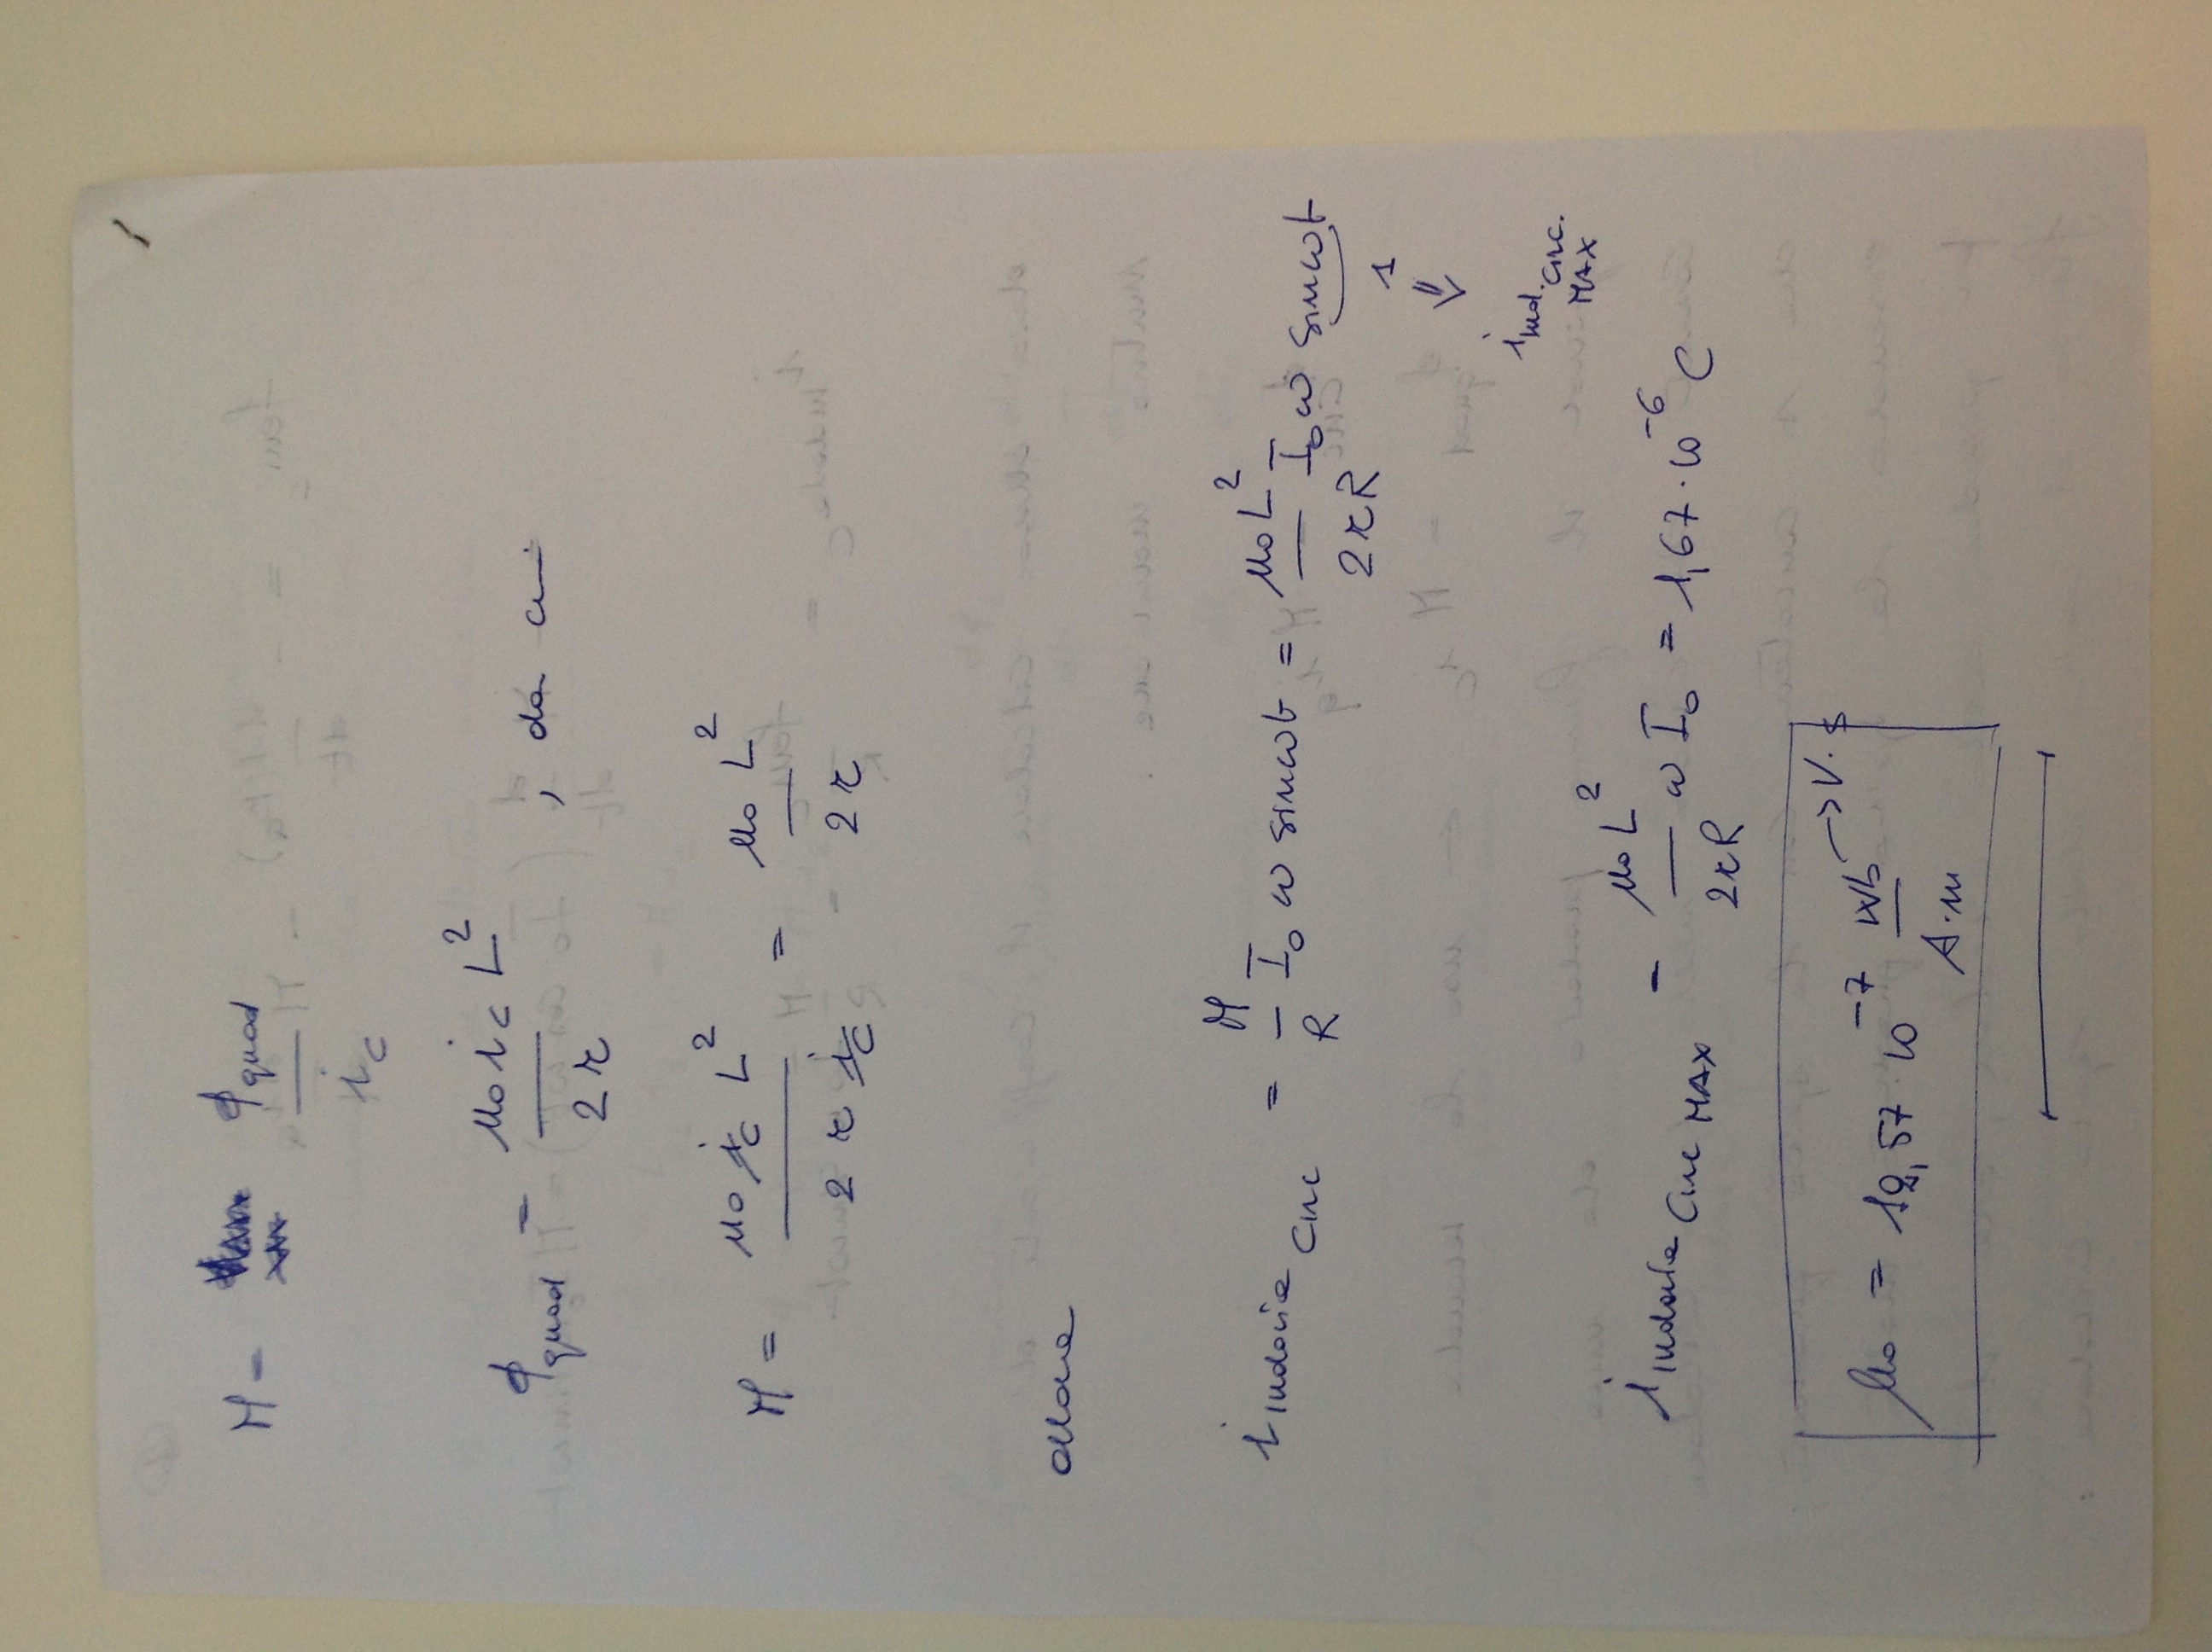 M = ϕquad / ic
ϕquad = μ0 ic L² / 2r , da cui
M = μ0 ic L² / 2 r ic = μ0 L² / 2r
allora
iindotta circ = M/R I0 ω sinωt = μ0 L² / 2rR I0 ω sinωt
1
⇓
iind. circ. MAX
iindotta circ MAX = μ0 L² / 2rR ω I0 = 1,67 · 10⁻⁶ C
μ0 = 12,57 10⁻⁷ Wb / A·m → V·s